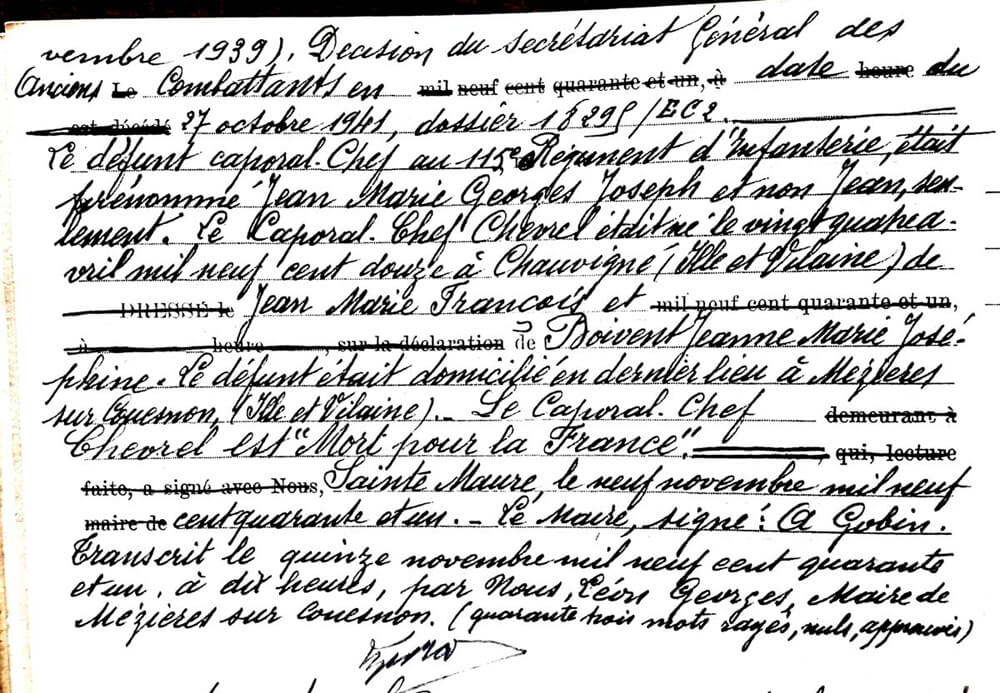 vembre 1939). Decision du Secrétariat Général des
Anciens Le Combattants en mil neuf cent quarante et un, à date heure du
est décédé 27 octobre 1941, dossier 18295/EC2.
Le défunt caporal-Chef au 115e Régiment d'Infanterie, était
prénommé Jean Marie Georges Joseph et non Jean, seu-
lement. Le Caporal-Chef Chevrel était né le vingt quatre a-
vril mil neuf cent douze à Chauvigné (Ille et Vilaine) de
DRESSÉ le Jean Marie François et mil neuf cent quarante et un,
à heure, sur la déclaration de Boivent Jeanne Marie José-
phine. Le défunt était domicilié en dernier lieu à Mézières
sur Couesnon, (Ille et Vilaine). Le Caporal-Chef demeurant à
Chevrel est "Mort pour la France". qui, lecture
faite, a signé avec Nous, Sainte Maure, le neuf novembre mil neuf
maire de cent quarante et un. - Le Maire, signé: A Gobin.
Transcrit le quinze novembre mil neuf cent quarante
et un, à dix heures, par Nous, Léon Georges, Maire de
Mézières sur Couesnon. (quarante trois mots rayés, nuls, approuvés)